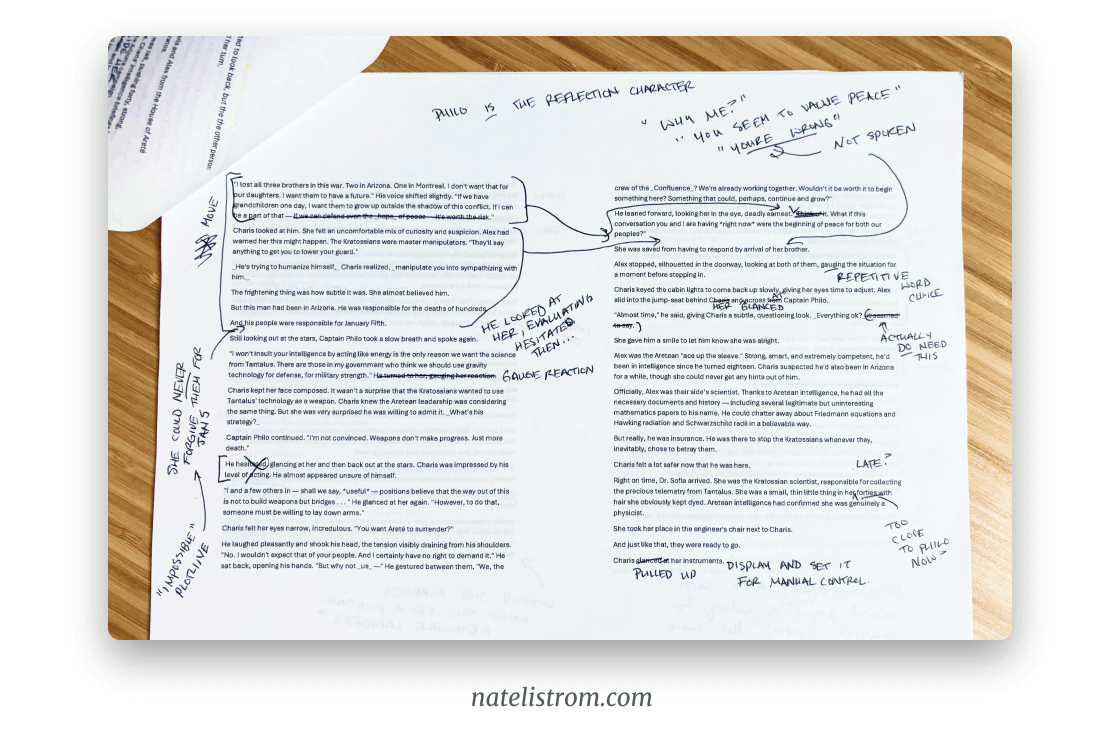 PHILO IS THE REFLECTION CHARACTER
"WHY ME?"
"YOU SEEM TO VALUE PEACE"
"YOU'RE WRONG"
NOT SPOKEN
ted to look back, but the other person
her turn.
and Alex from the House of Areté
MOVE
"I lost all three brothers in this war. Two in Arizona. One in Montreal. I don't want that for
our daughters. I want them to have a future." His voice shifted slightly. "If we have
grandchildren one day, I want them to grow up outside the shadow of this conflict. If I can
be a part of that — if we can defend even the _hope_ of peace — it's worth the risk."
Charis looked at him. She felt an uncomfortable mix of curiosity and suspicion. Alex had
warned her this might happen. The Kratossians were master manipulators. "They'll say
anything to get you to lower your guard."
_He's trying to humanize himself,_ Charis realized, _manipulate you into sympathizing with
him._
The frightening thing was how subtle it was. She almost believed him.
But this man had been in Arizona. He was responsible for the deaths of hundreds.
And his people were responsible for January Fifth.
HE LOOKED AT
HER, EVALUATING
HESITATED
THEN...
Still looking out at the stars, Captain Philo took a slow breath and spoke again.
"I won't insult your intelligence by acting like energy is the only reason we want the science
from Tantalus. There are those in my government who think we should use gravity
technology for defense, for military strength." He turned to her, gauging her reaction.
GAUGE REACTION
Charis kept her face composed. It wasn't a surprise that the Kratossians wanted to use
Tantalus' technology as a weapon. Charis knew the Aretean leadership was considering
the same thing. But she was very surprised he was willing to admit it. _What's his
strategy?_
Captain Philo continued. "I'm not convinced. Weapons don't make progress. Just more
death."
He hesitated, glancing at her and then back out at the stars. Charis was impressed by his
level of acting. He almost appeared unsure of himself.
"I and a few others in — shall we say, *useful* — positions believe that the way out of this
is not to build weapons but bridges . . ." He glanced at her again. "However, to do that,
someone must be willing to lay down arms."
Charis felt her eyes narrow, incredulous. "You want Areté to surrender?"
He laughed pleasantly and shook his head, the tension visibly draining from his shoulders.
"No. I wouldn't expect that of your people. And I certainly have no right to demand it." He
sat back, opening his hands. "But why not _us_ —" He gestured between them, "We, the
SHE COULD NEVER
FORGIVE THEM FOR
JAN 5
"IMPOSSIBLE"
PLOTLINE
crew of the _Confluence_? We're already working together. Wouldn't it be worth it to begin
something here? Something that could, perhaps, continue and grow?"
He leaned forward, looking her in the eye, deadly earnest. "Think of it. What if this
conversation you and I are having *right now* were the beginning of peace for both our
peoples?"
She was saved from having to respond by arrival of her brother.
Alex stopped, silhouetted in the doorway, looking at both of them, gauging the situation for
a moment before stepping in.
REPETITIVE
WORD
CHOICE
Charis keyed the cabin lights to come back up slowly, giving her eyes time to adjust. Alex
slid into the jump-seat behind Charis and across from Captain Philo.
HER GLANCED AT
"Almost time," he said, giving Charis a subtle, questioning look. _Everything ok?_ it seemed
to say.
ACTUALLY
DO NEED
THIS
She gave him a smile to let him know she was alright.
Alex was the Aretean "ace up the sleeve." Strong, smart, and extremely competent, he'd
been in intelligence since he turned eighteen. Charis suspected he'd also been in Arizona
for a while, though she could never get any hints out of him.
Officially, Alex was their side's scientist. Thanks to Aretean intelligence, he had all the
necessary documents and history — including several legitimate but uninteresting
mathematics papers to his name. He could chatter away about Friedmann equations and
Hawking radiation and Schwarzschild radii in a believable way.
But really, he was insurance. He was there to stop the Kratossians whenever they,
inevitably, chose to betray them.
Charis felt a lot safer now that he was here.
LATE?
Right on time, Dr. Sofia arrived. She was the Kratossian scientist, responsible for collecting
the precious telemetry from Tantalus. She was a small, thin little thing in her forties with
hair she obviously kept dyed. Aretean intelligence had confirmed she was genuinely a
physicist.
TOO
CLOSE
TO PHILO
NOW?
She took her place in the engineer's chair next to Charis.
And just like that, they were ready to go.
Charis glanced at her instruments.
PULLED UP
DISPLAY AND SET IT
FOR MANUAL CONTROL.
natelistrom.com